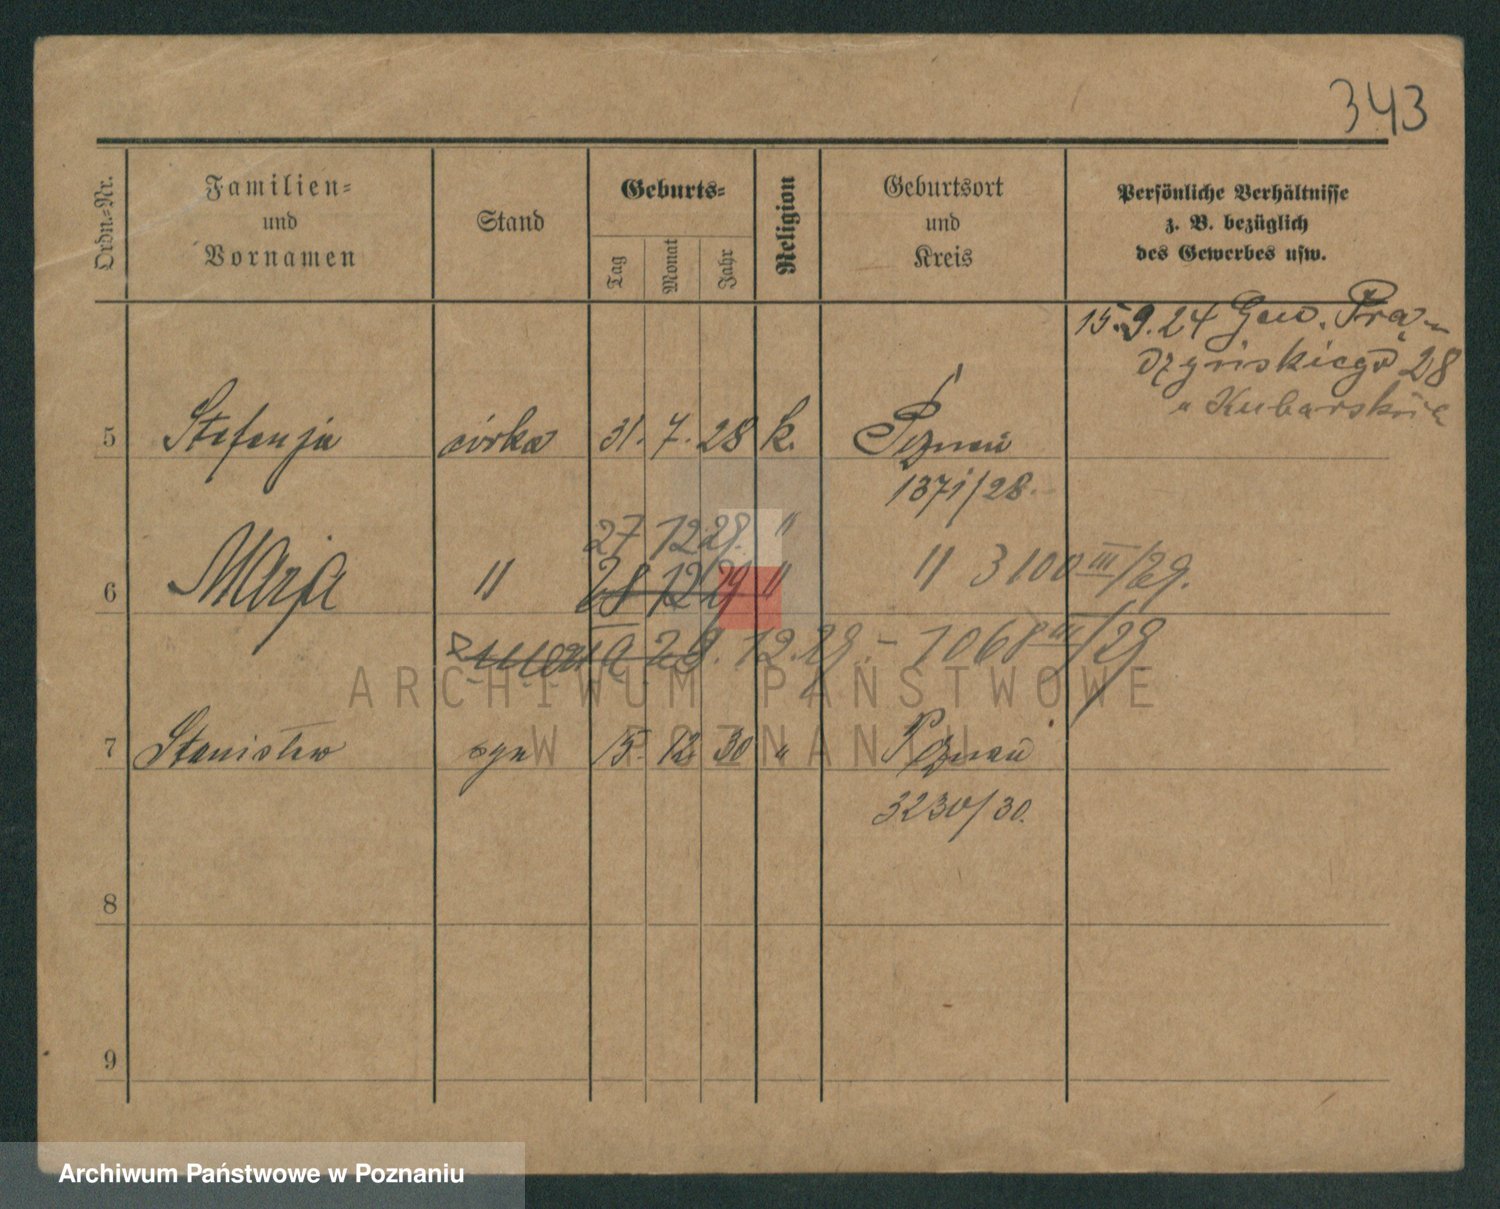 343
Ordn.-Nr.
Familien-
und
Vornamen
Stand
Geburts-
Tag
Monat
Jahr
Religion
Geburtsort
und
Kreis
Persönliche Verhältnisse
z. B. bezüglich
des Gewerbes usw.
15.9.24 Gen. Prą-
dzyńskiego 28
5 Stefanja córka 31. 7. 28 k. Poznań
1371/28.
27 12 29. "
6 Marja " 28 12 29 " " 3100 III/29.
zmarła 29.12.29. - 1068 III/29
7 Stanisław syn 15. 12 30 " Poznań
3230/30.
8
9
ARCHIWUM PAŃSTWOWE
W POZNANIU
Archiwum Państwowe w Poznaniu